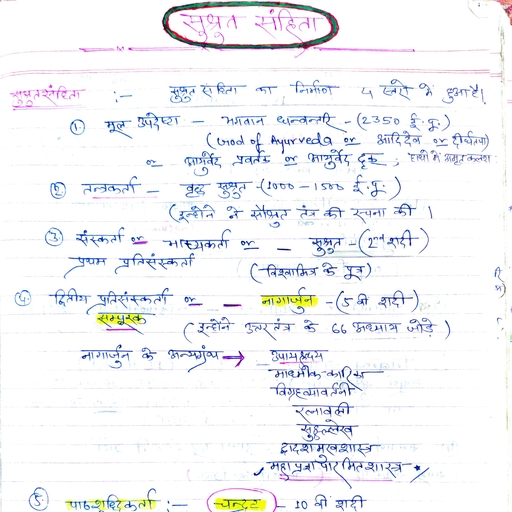 सुश्रुत संहिता
सुश्रुतसंहिता :- सुश्रुत संहिता का निर्माण 4 स्तरो में हुआ है।
1. मूल उपदेष्टा - भगवान धान्वन्तरि - (2350 ई.पू.)
(God of Ayurveda or आदिदेव or दीर्घतपा)
or आयुर्वेद प्रवर्तक or आयुर्वेद दृक, हाथो में अमृत कलश
2. तन्त्रकर्ता - वृद्ध सुश्रुत - (1000 - 1500 ई.पू.)
(इन्होने ने सौश्रुत तंत्र की रचना की।
3. संस्कर्ता or भाष्यकर्ता or - सुश्रुत - (2nd शदी)
प्रथम प्रतिसंस्कर्ता (विश्वामित्र के पुत्र)
4. द्वितीय प्रतिसंस्कर्ता or - नागार्जुन - (5 वी शदी)
सम्पूरक (इन्होने उत्तर तंत्र के 66 अध्याय जोड़े)
नागार्जुन के अन्यग्रंथ → उपायहृदय
माध्मीक-कारिका
विग्रहव्यावर्तनी
रत्नावली
सुहृल्लेख
द्वादशमुखशास्त्र
महाप्रज्ञापारमितशास्त्र
5. पाठशुद्धिकर्ता :- चन्द्रट - 10 वी शदी